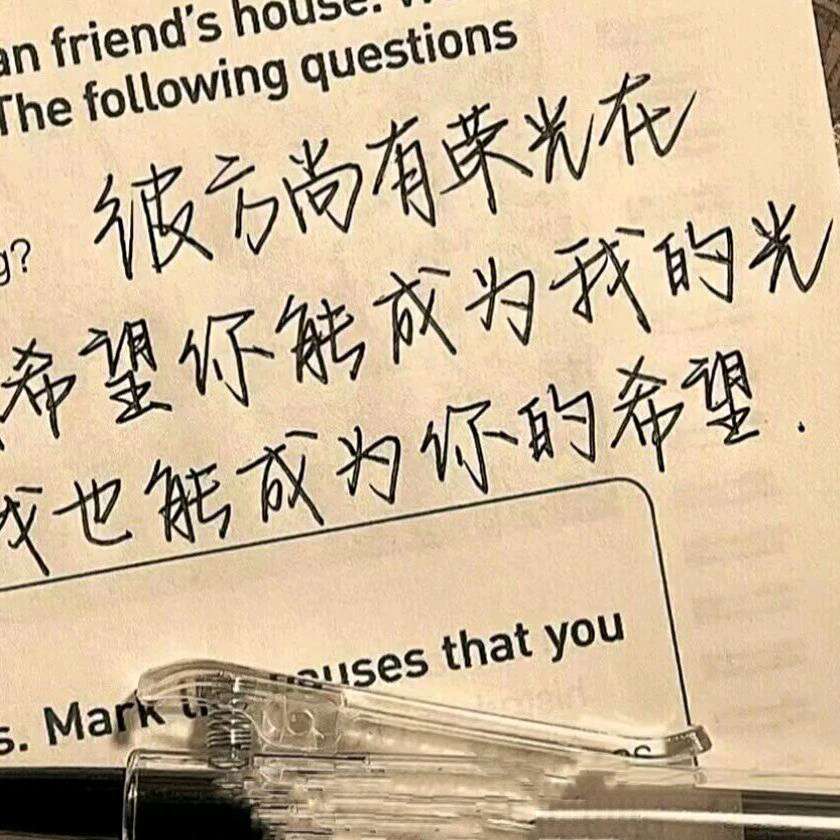 an friend's house.
The following questions
g?
彼方尚有荣光在
希望你能成为我的光
我也能成为你的希望.
s. Mark that you